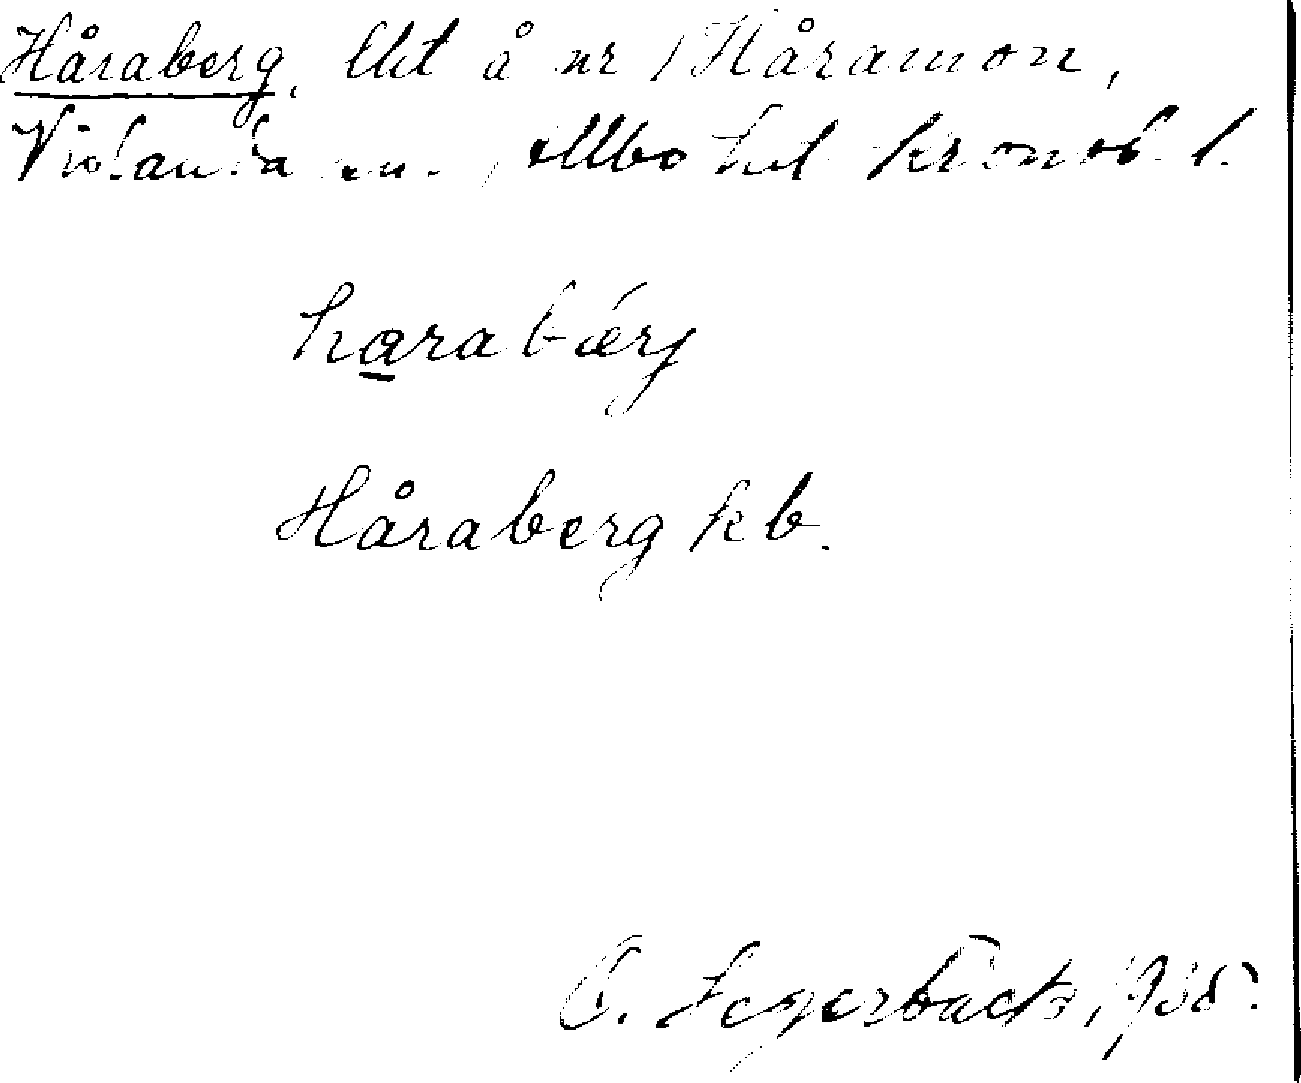 Håraberg, Lht å nr 1 Håramon,
Vislanda sn., Allbo hd Kronob. l.
harabærj
Håraberg kb.
O. Segerbäck, 1935.